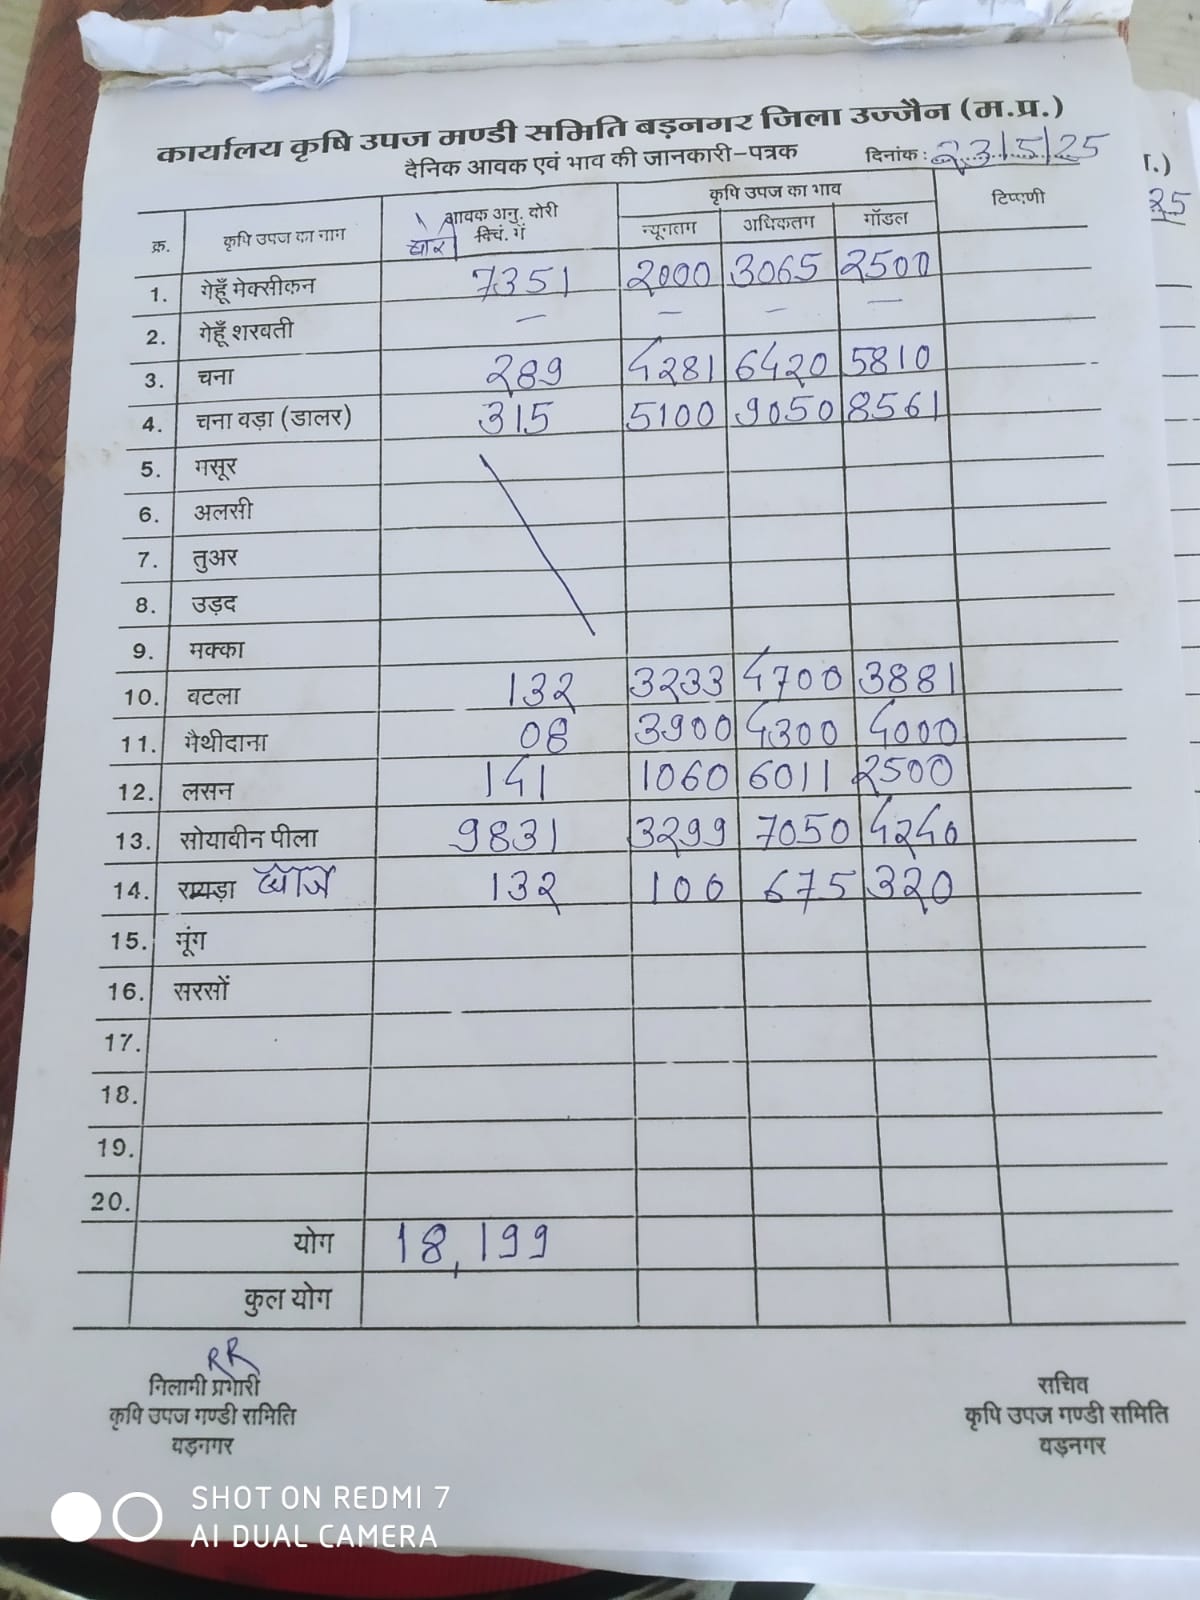 कार्यालय कृषि उपज मण्डी समिति बड़नगर जिला उज्जैन (म.प्र.)
दैनिक आवक एवं भाव की जानकारी-पत्रक दिनांक : 23/5/25
क्र. कृषि उपज का नाम आवक अनु. बोरी क्विं. में कृषि उपज का भाव टिप्पणी
न्यूनतम अधिकतम मॉडल
1. गेहूँ मेक्सीकन 7351 2000 3065 2500
2. गेहूँ शरबती — — — —
3. चना 289 4281 6420 5810
4. चना बड़ा (डालर) 315 5100 9050 8561
5. मसूर
6. अलसी
7. तुअर
8. उड़द
9. मक्का
10. बटला 132 3233 4700 3881
11. मैथीदाना 08 3900 4300 4000
12. लसन 141 1060 6011 2500
13. सोयाबीन पीला 9831 3299 7050 4240
14. रायड़ा प्याज 132 100 675 320
15. मूंग
16. सरसों
17.
18.
19.
20.
योग 18,199
कुल योग
RR
निलामी प्रभारी
कृषि उपज मण्डी समिति
बड़नगर
सचिव
कृषि उपज मण्डी समिति
बड़नगर
SHOT ON REDMI 7
AI DUAL CAMERA
.)
25